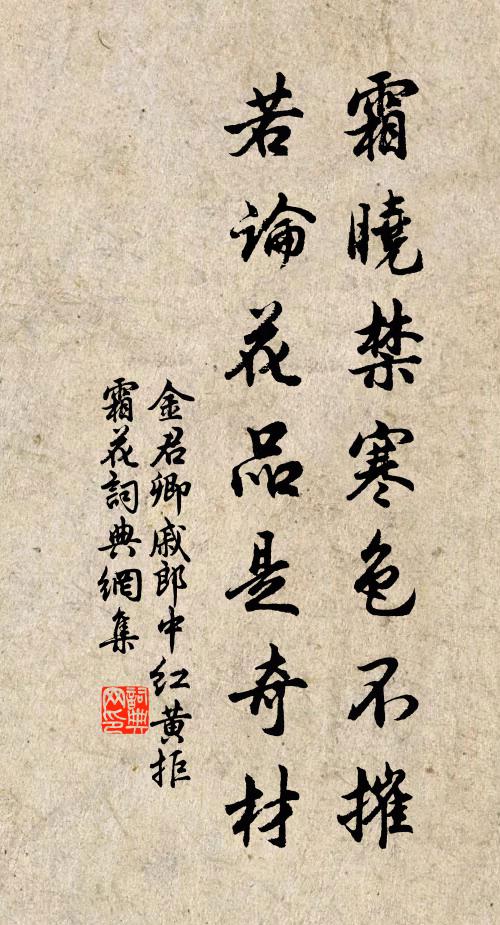 霜曉禁寒色不摧
若論花品是奇材
金君卿戚郎中红黄拒
霜花詞典網集
詞典网印